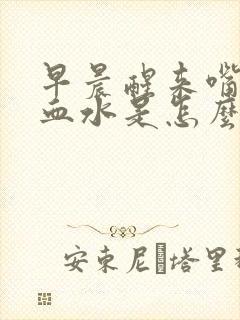 早晨醒来嘴
血水是怎麼
安東尼·塔里